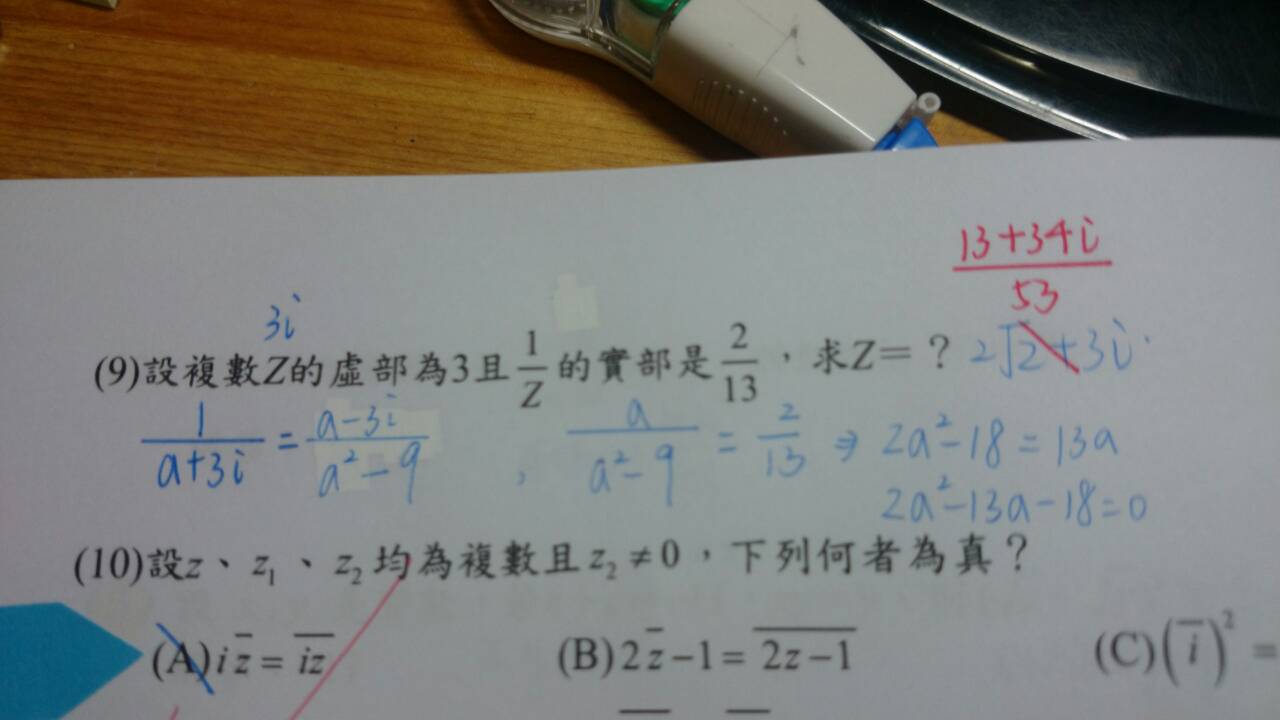 13+34i
53
3i
(9)設複數Z的虛部為3且1/Z的實部是2/13,求Z=? 2√2+3i
1/(a+3i) = (a-3i)/(a²-9) , a/(a²-9) = 2/13 ⇒ 2a²-18=13a
2a²-13a-18=0
(10)設z、z₁、z₂均為複數且z₂≠0,下列何者為真?
(A) i z̅ = i̅z̅ (B) 2z̅-1 = 2̅z̅-̅1̅ (C) (i̅)² =